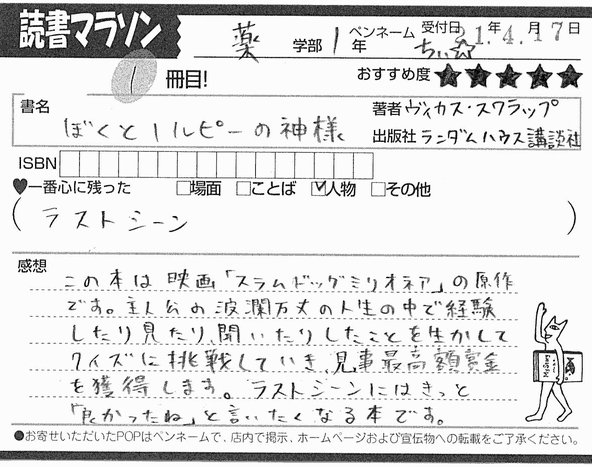 読書マラソン
薬 学部 1 年 ペンネーム ちぃ☆ 受付日 21.年 4.月 17日
1 冊目! おすすめ度 ★★★★★
書名 ぼくと1ルピーの神様
著者 ヴィカス・スワラップ
出版社 ランダムハウス講談社
ISBN
♥一番心に残った □場面 □ことば ☑人物 □その他
(ラストシーン)
感想
この本は映画「スラムドッグミリオネア」の原作
です。主人公の波瀾万丈の人生の中で経験
したり見たり、聞いたりしたことを生かして
クイズに挑戦していき、見事最高額賞金
を獲得します。ラストシーンにはきっと
「良かったね」と言いたくなる本です。
●お寄せいただいたPOPはペンネームで、店内で掲示、ホームページおよび宣伝物への転載をご了承ください。